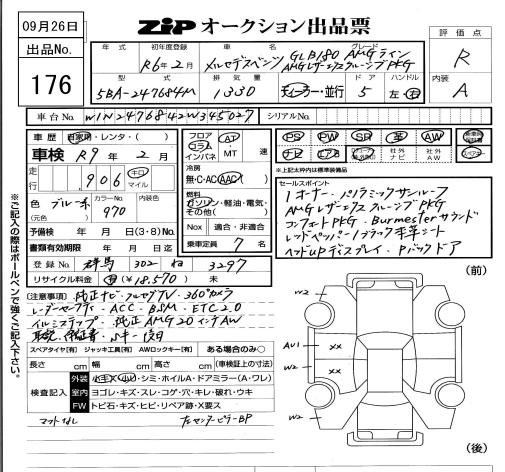 09月26日
出品No.
176
ZIP オークション出品票
評価点
R
内装
A
年式 初年度登録 車名 グレード
R6年2月 メルセデスベンツ GLB180 AMGライン
AMGレザーエクスクルーシブPKG
型式 排気量 ドア ハンドル
5BA-247684M 1330 ディーラー・並行 5 左・右
車台No. W1N2476842W345027 シリアルNo.
車歴 自家用・レンタ・( )
車検 R9年2月
走行 906 キロ マイル
色 ブルー系 (元色) カラーNo. 970 内装色
予備検 年 月 日(3・8)No.
書類有効期限 年 月 日迄
登録No. 群馬 302 ね 3297
リサイクル料金 有(¥18,570) 未
フロア コラム インパネ AT・MT 速
冷房 無・C・AC・AAC
燃料 ガソリン・軽油・電気・その他( )
Nox 適合・非適合
乗車定員 7 名
PS PW SR 革 AW
ナビ エアB 社外ナビ 社外AW
※上記太枠内は標準装備品
セールスポイント
1オーナー・パノラミックサンルーフ
AMGレザーエクスクルーシブPKG
コンフォートPKG・Burmesterサウンド
レッドペッパー/ブラック本革シート
ヘッドupディスプレイ・Pバックドア
(注意事項)純正ナビ・フルセグTV・360°カメラ
レーダーセーフティ・ACC・BSM・ETC2.0
イルミステップ・純正AMG20インチAW
取説・保証書・sキー後日
スペアタイヤ[有] ジャッキ工具[有] AWロックキー[有] ある場合のみ○
長さ cm 幅 cm 高さ cm (車検証上の寸法)
検査記入
外装 小キズ・小凹・シミ・ホイルA・ドアミラー(A・ワレ)
室内 ヨゴレ・キズ・スレ・コゲ・穴・キレ・破れ・ウキ
FW トビ石・キズ・ヒビ・リペア跡・X要ス
マットなし
左センターピラーBP
※ご記入の際はボールペンで強くご記入下さい。
(前)
W2
W2
AU1
XX
W2
XX
W2
W2
(後)